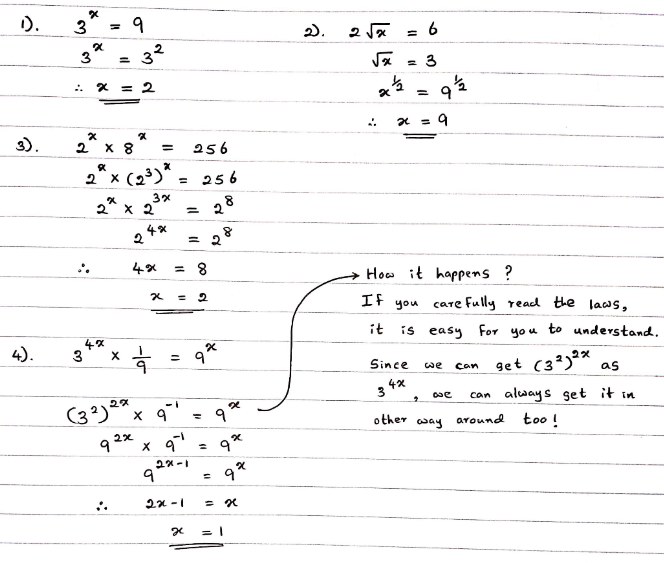 1). 3^x = 9
3^x = 3^2
∴ x = 2
2). 2√x = 6
√x = 3
x^½ = 9^½
∴ x = 9
3). 2^x × 8^x = 256
2^x × (2^3)^x = 256
2^x × 2^3x = 2^8
2^4x = 2^8
∴ 4x = 8
x = 2
4). 3^4x × 1/9 = 9^x
(3^2)^2x × 9^-1 = 9^x
9^2x × 9^-1 = 9^x
9^2x-1 = 9^x
∴ 2x-1 = x
x = 1
How it happens ?
If you carefully read the laws,
it is easy for you to understand.
Since we can get (3^2)^2x as
3^4x, we can always get it in
other way around too!